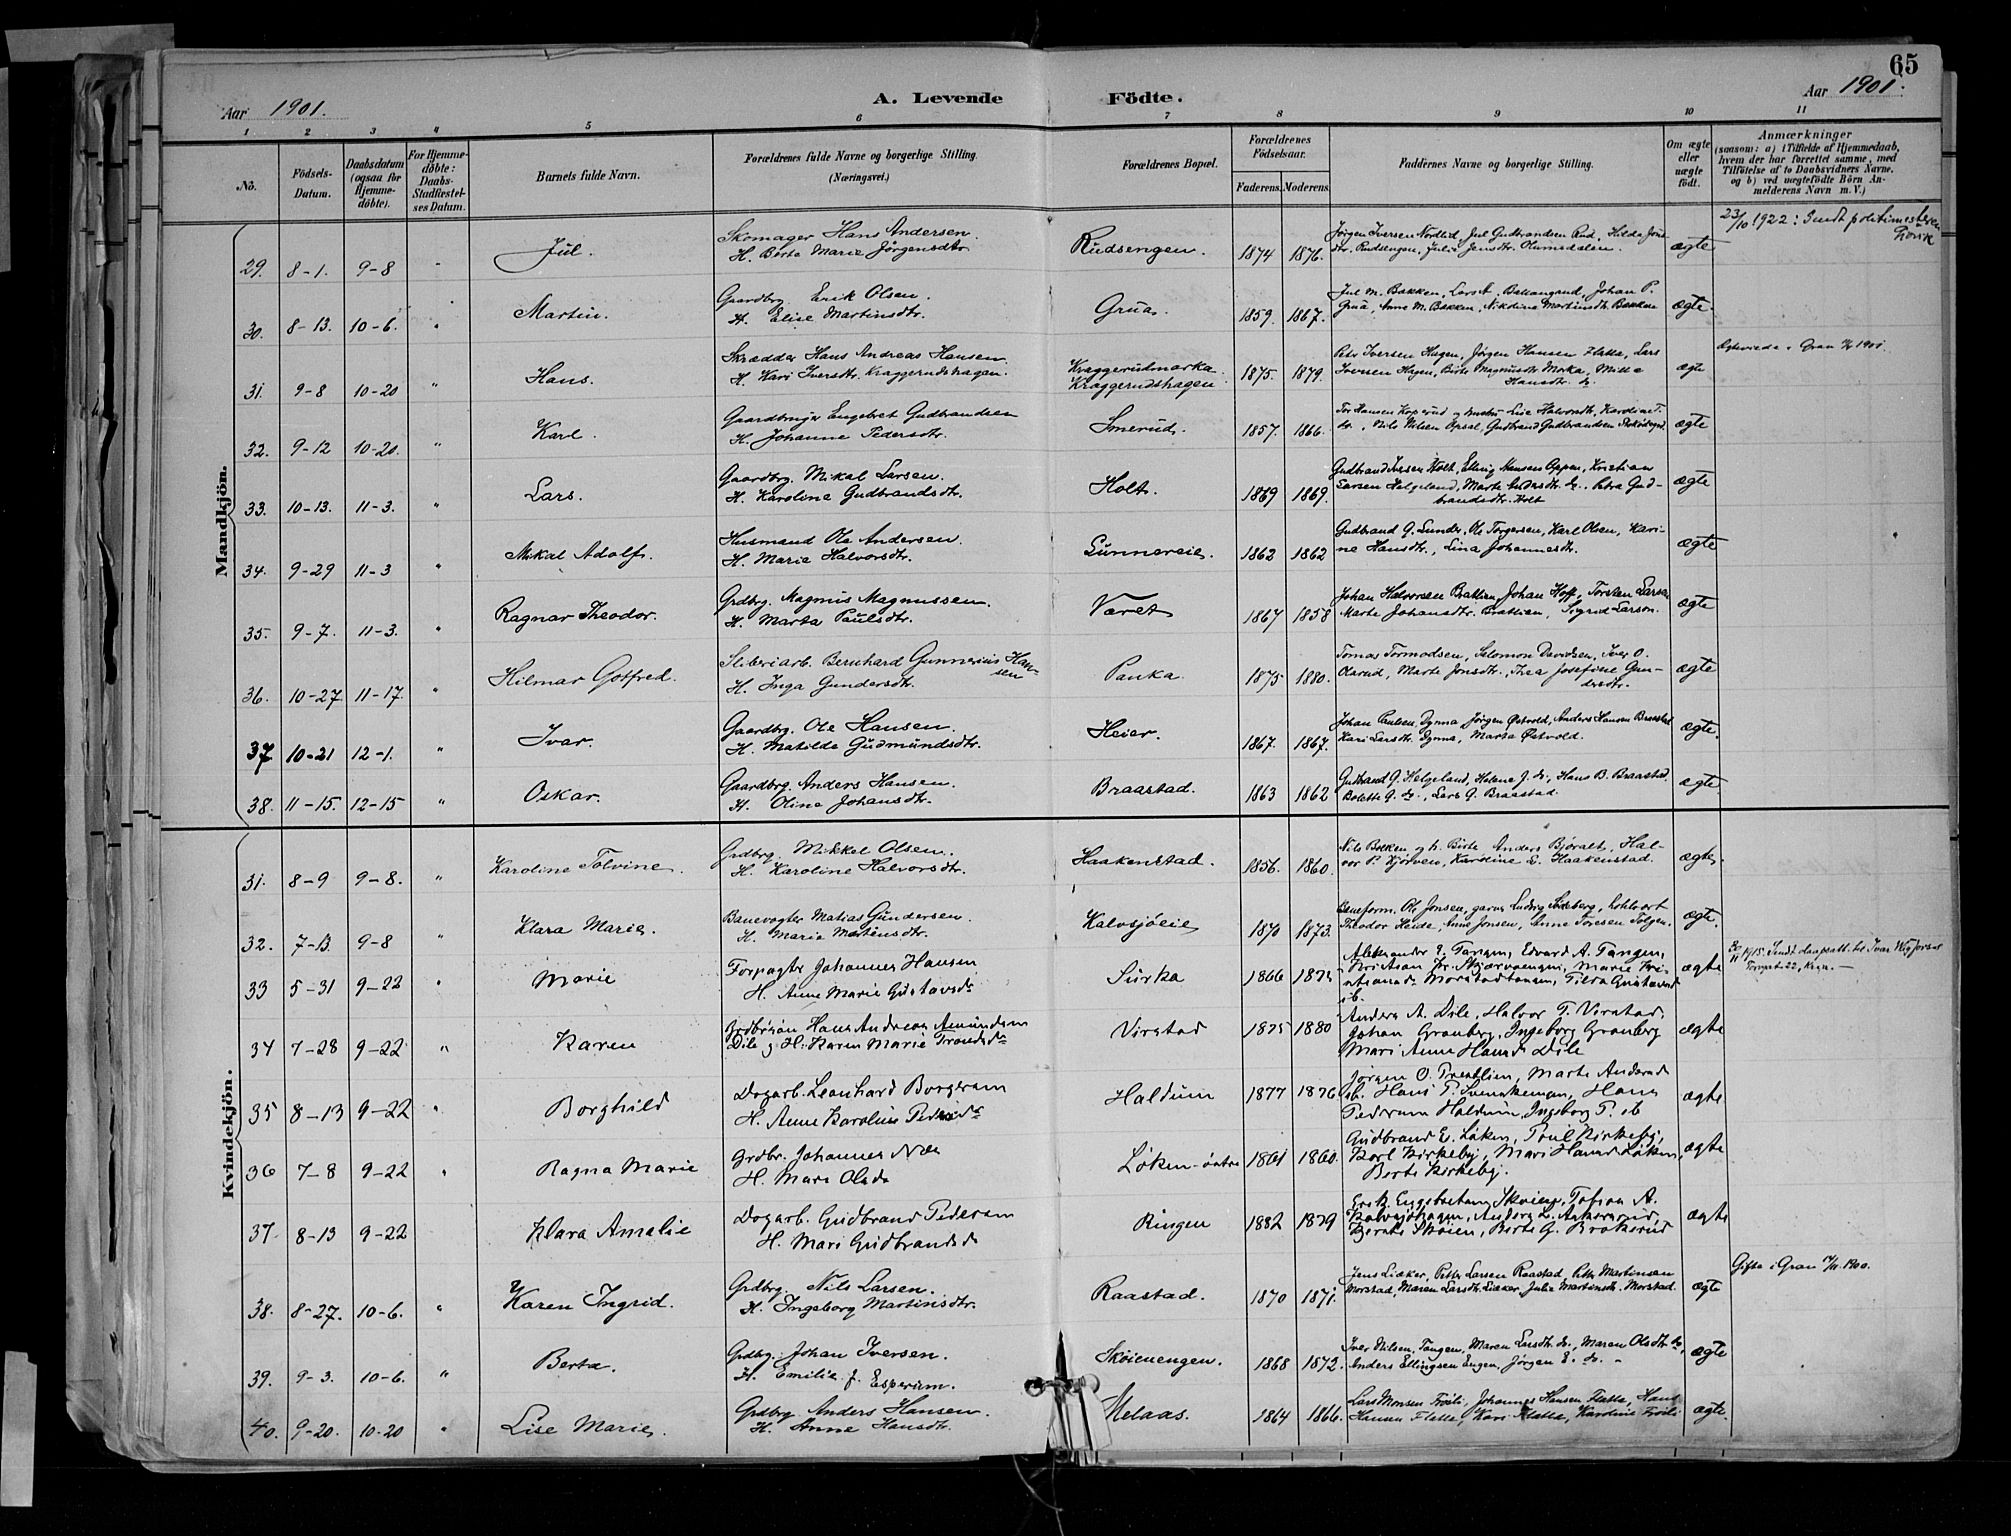 65
Aar 1901.
A. Levende Födte.
Aar 1901.
1 2 3 4 5 6 7 8 9 10 11
No.
Födsels-Datum.
Daabsdatum (ogsaa for Hjemme-döbte).
For Hjemme-döbte: Daabs-Stadfæstel-ses Datum.
Barnets fulde Navn.
Forældrenes fulde Navne og borgerlige Stilling.
(Næringsvei.)
Forældrenes Bopæl.
Forældrenes Födselsaar.
Faderens. Moderens.
Faddernes Navne og borgerlige Stilling.
Om ægte eller uægte født.
Anmærkninger
(saasom: a) i Tilfælde af Hjemmedaab, hvem der har forrettet samme, med Tilföielse af to Daabsvidners Navne, og b) ved uægtefödte Börn An-melderens Navn m. V.)
Mandkjön.
29. 8-1. 9-8 Jul. Skomager Hans Andersen.
H. Berte Marie Jörgensdtr. Rudsengen. 1874 1876. Jörgen Iversen Nordlid, Jul Gudbrandsen Rud, Hilda
Rudsengen, Julie Jensdtr. ægte
23/10 1922: Sendt politimesteren
30. 8-13. 10-6. " Martin. Gaardbrg. Erik Olsen.
H. Elise Martinsdtr. Grua. 1859. 1867. Jul M. Bakken, Lars A. Ballangrud, Johan P.
Grua, Anne M. Bakken, Nikoline Martinsdtr. Bakken ægte.
31. 9-8 10-20 " Hans. Skrædder Hans Andreas Hansen.
H. Kari Iversdtr. Kraggerudshagen. Kraggerudmarka.
Kraggerudshagen. 1875. 1879. Peter Iversen Hagen, Jörgen Hansen Flatla, Lars
Iversen Hagen, Berte Magnusdtr. Morka, Mitle
Hansdtr. do. ægte
Ægteviede i Gran 1901.
32. 9-12 10-20. " Karl. Gaardbruger Engebret Gudbrandsen
H. Johanne Pedersdtr. Smerud. 1857. 1866. Tor Hansen Koperud og hustru Lise Halvorsdtr, Karoline T.
do., Nils Nilsen Opsal, Gudbrand Gudbrandsen ægte
33. 10-13. 11-3. " Lars. Gaardbrg. Mikal Larsen.
H. Karoline Gudbrandsdtr. Holt. 1869 1869. Gudbrand Iversen Holt, Elling Hansen Oppen, Kristian
Larsen Helgeland, Marte do., Petra Gud-
brandsdtr. Holt ægte
34. 9-29 11-3 " Mikal Adolf. Husmand Ole Andersen.
H. Marie Halvorsdtr. Gunnereie. 1862 1862 Gudbrand G. Lunder, Ole Torgersen, Karl Olsen, Kari-
ne Hansdtr., Lina Johannesdtr. ægte
35. 9-7. 11-3. " Ragnar Theodor. Grdbrg. Magnus Magnussen.
H. Marta Paulsdtr. Været 1867 1858 Johan Halvorsen Brattlien, Johan Hoff, Torsten Larsen
Marte Johansdtr. Brattlien, Sigrid Larson. ægte
36. 10-27 11-17. " Hilmar Gotfred. Sliberiarb. Bernhard Gunnerius Han-
sen
H. Inga Gundersdtr. Panka. 1875 1880. Tomas Tormodsen, Salomon Davidsen, Iver O.
Olerud, Marte Jonsdtr., Thea Josefine Gun-
dersdtr. ægte
37. 10-21 12-1. " Ivar. Gaardbrg. Ole Hansen.
H. Matilde Gudmundsdtr. Heier. 1867. 1867. Johan Paulsen, Dynna Jörgen Östvold, Anders Hansen Braastad
Kari Larsdtr. Dynna, Marta Östvold. ægte.
38. 11-15. 12-15 " Oskar. Gaardbrg. Anders Hansen.
H. Oline Johansdtr. Braastad. 1863 1862 Gudbrand G. Helgeland, Helene J. do., Hans B. Braastad
Bolette G. do., Lars G. Braastad. ægte
Kvindekjön.
31. 8-9 9-8. " Karoline Tolvine. Grdbrg. Mikkel Olsen.
H. Karoline Halvorsdtr. Haakenstad. 1856. 1860. Nils Bakken og h. Berte Anders Björalt, Hal-
vor P. Kjörven, Karoline L. Haakenstad. ægte.
32. 7-13 9-8 " Klara Marie. Banevogter Matias Gundersen.
H. Marie Martinsdtr. Kalvsjöeie 1870 1873. Baneform. Ole Jonsen, garver Ludvig
Theodor Heide, Anne Jonsen, Anne Toresen Tolgen. ægte.
33 5-31 9-22 " Marie Forpagter Johannes Hansen
H. Anne Marie Gustavsdr Surka 1866 Aleksander E. Tangen, Edvard A. Tangen,
Kristian Skjervaengen, Marie Kri-
Morstadtangen, Tilda Gustavsd
ib. ægte
1915. Sendt daapsatt. til Ivar
Torvgt. 22, Kr.a. —
34 7-28 9-22 " Karen Hans Andreas Amundsen
Dile og H. Karen Marie Trondsdr Virstad 1875 1880 Anders A. Dile, Halvor T. Virstad,
Johan Granberg, Ingeborg Granberg
Mari Anne Hansd. Dile ægte
35 8-13 9-22 " Borghild Dagarb. Leonhard Borgersen
H. Anne Karoline Pedersdr Haldum 1877 1876 Jörgen O. Prestlien, Marte Andersd
ib. Hans P. Svenskemoen, Hans
Pedersen Haldum, Ingeborg P. ib ægte
36 7-8 9-22 " Ragna Marie Grdbr. Johannes Næs
H. Mari Olsdr Löken-östre 1861 1860. Gudbrand E. Löken, Poul Kirkeby,
Karl Kirkeby, Mari Hansd Löken,
Berte Kirkeby. ægte
37. 8-13 9-22 Klara Amalie Dagarb. Gudbrand Pedersen
H. Mari Gudbrandsd. Ringen 1882 1879 Erik Engebretsen Skoien, Tofson A.
Kalvsjöhagen, Anders L.
Skoien, Berte G. Brokerud ægte
38. 8-27. 10-6. " Karen Ingrid. Grdbrg. Nils Larsen.
H. Ingeborg Martinsdtr. Raastad. 1870 1871. Jens Liøker, Petter Larsen Raastad, Peter Martinsen
Morstad, Maren Larsdtr. Liøker, Julie Martinsdtr. Morstad. ægte
Gifte i Gran 1900.
39. 9-3. 10-6. " Berta. Grdbrg. Johan Iversen.
H. Emilie f. Espersen. Skoienengen. 1868 1872. Iver Nilsen, Tangen, Maren Larsdtr. do., Maren Olsdtr. do,
Anders Ellingsen Engen, Jörgen E. do. ægte
40. 9-20. 10-20 " Lise Marie. Grdbrg. Anders Hansen.
H. Anne Hansdtr. Melaas. 1864 1866. Lars Monsen Fröili, Johannes Hansen Flatla, Hans
Hansen Flatla, Kari Flatla, Karoline Fröili ægte.